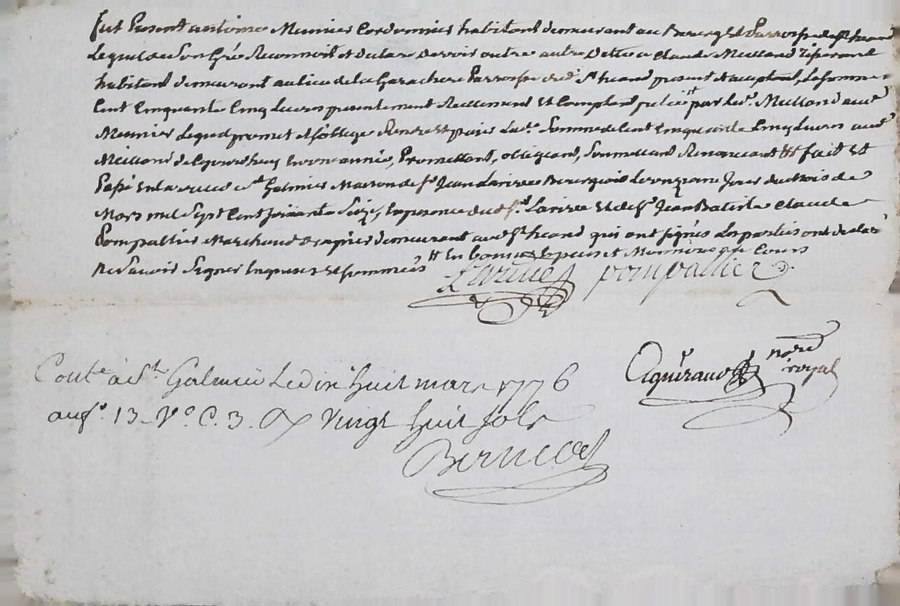 fut Present antoinne Meunier Cordonnier habitant demeurant au Bourg et Parroisse de St heand
Lequel de Son Gré Reconnoit et Declare devoir outre autre Dette a Claude Meilland
habitant demeurant au lieu de la Gerachere Parroisse dud. St heand present et acceptant, La Somme
Cent Cinquante Cinq Livres presentement Reellement Et Comptant par led. Meilland aud.
Meunier Lequel promet et s'oblige Rendre et paier Lad. Somme de Cent Cinquante Cinq Livres aud.
Meilland d'aujourdhuy en une année, Promettant, obligeant, Soumettant Renonceant ## fait Et
Passé En la ville de St. Galmier Maison de Sr. Jean Larivee Bourgeois Le onzieme Jour du Mois de
Mars mil Sept Cent Soixante Seize, En presence dud. Sr. Larivee Et de Sr. Jean Batiste Claude
Pompallier Marchand demeurant aud. St heand qui ont signés Les parties ont declaré
ne Savoir Signer Enquises et sommées ## En bonnes Especes et Monnoie de Cours
Larivee pompallier
Contlé. à St. Galmier Le dix huit mars 1776
au fo. 13. Vo. C. 3. Vingt huit Sols
notre
royal